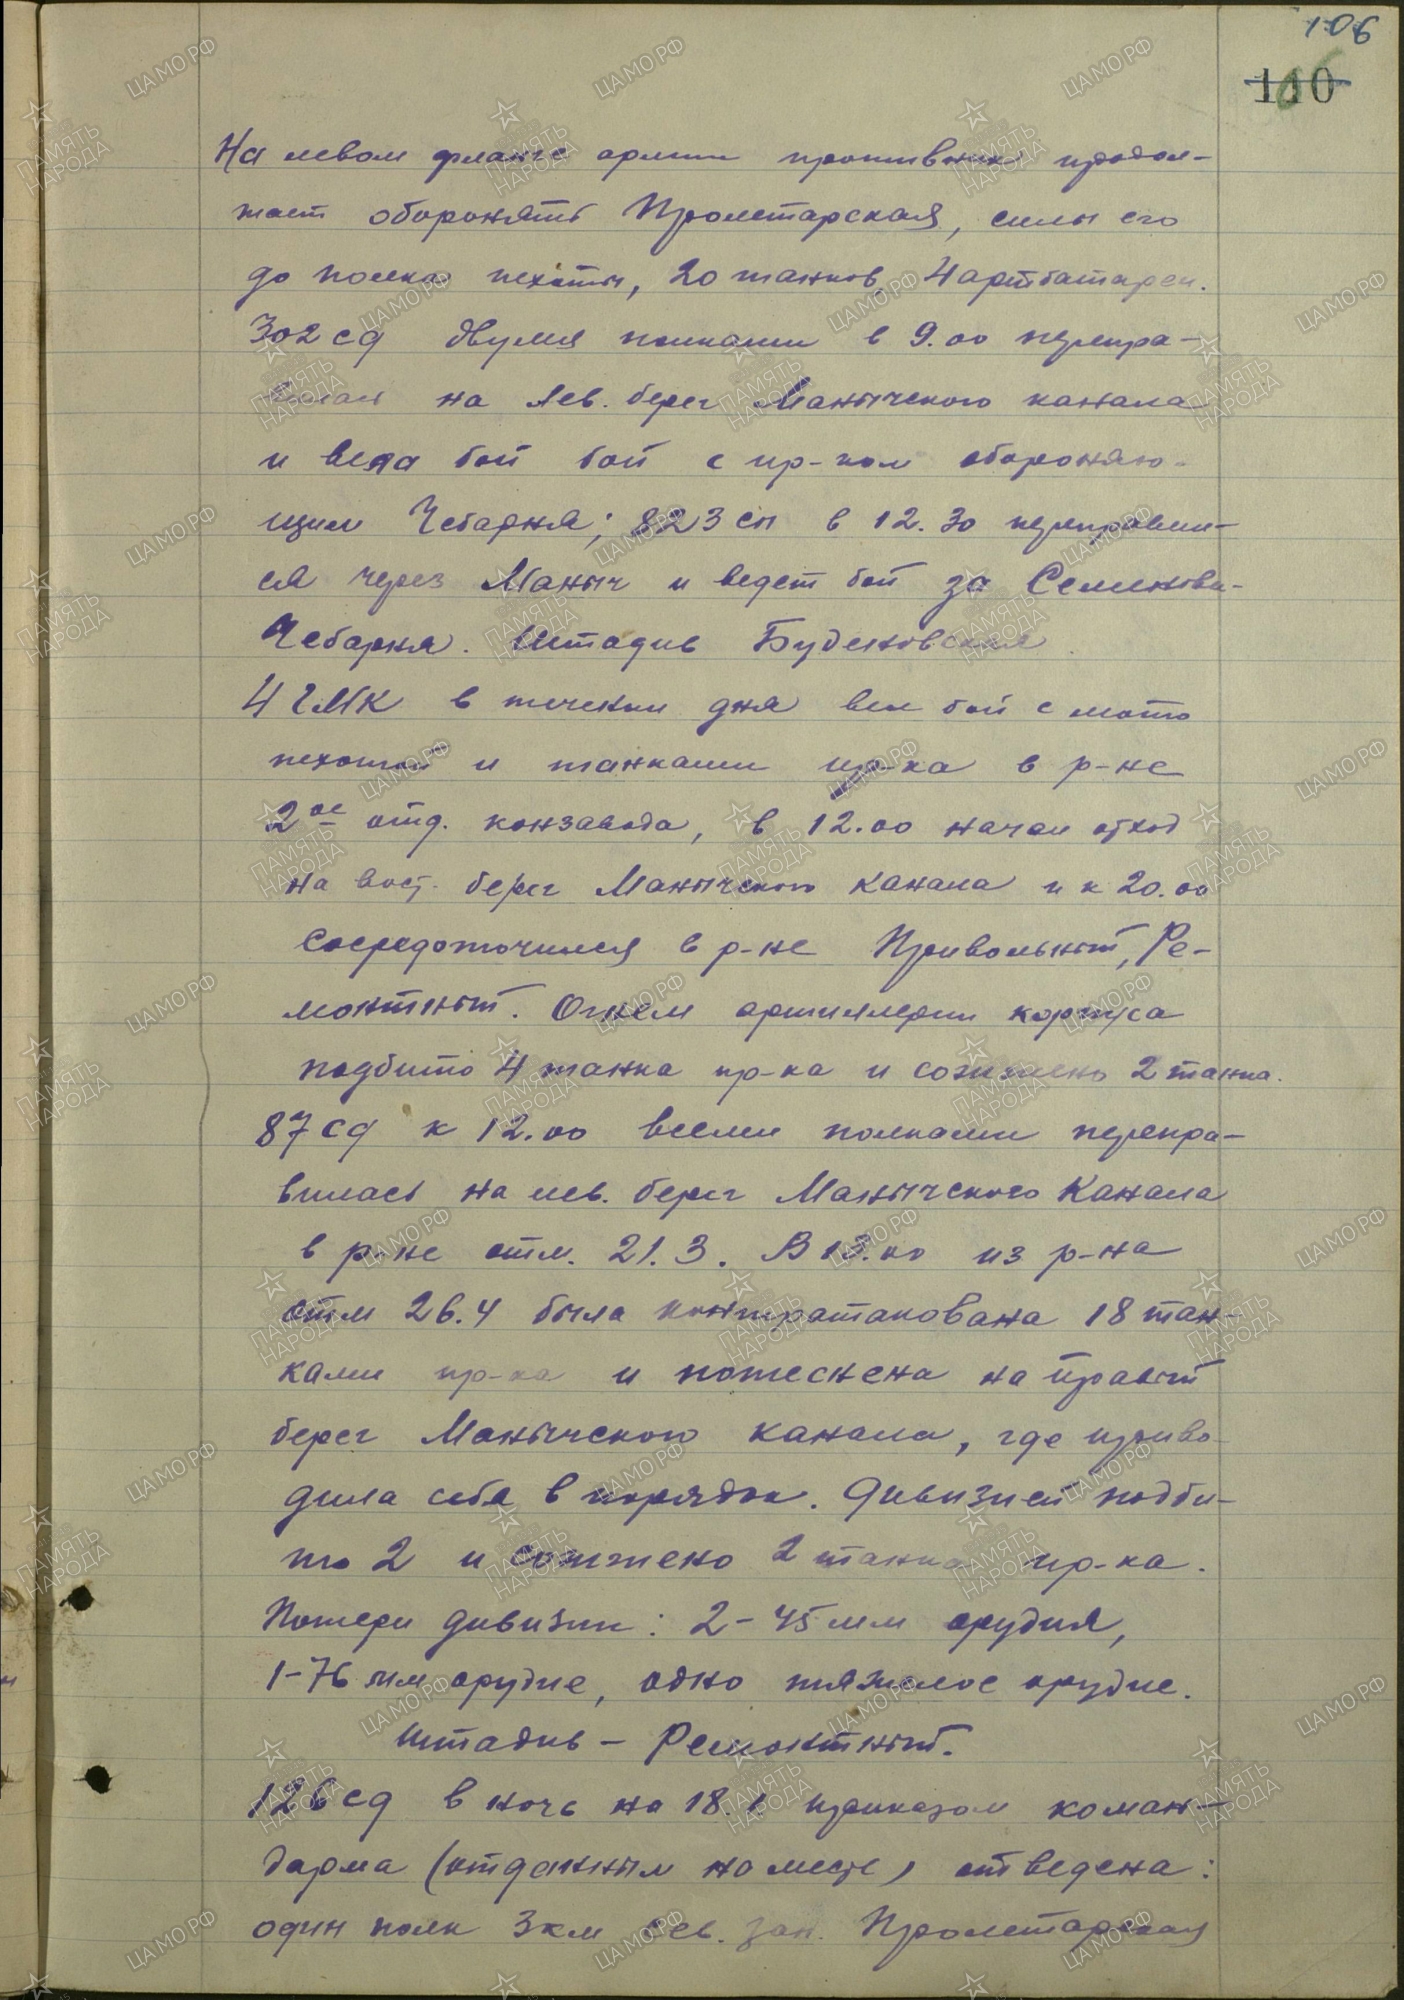 106
110
На левом фланге армии противник продол-
жает оборонять Пролетарская, силы его
до полка пехоты, 20 танков, 4 артбатареи.
302 сд двумя полками в 9.00 перепра-
вилась на лев. берег Манычского канала
и вела бой бой с пр-ком обороняю-
щим Чебарня; 823 сп в 12.30 переправил-
ся через Маныч и ведет бой за
Чебарня. Штадив Буденовская
4 ГМК в течении дня вел бой с мото
пехотой и танками пр-ка в р-не
2ое отд. конзавода, в 12.00 начал отход
на вост. берег Манычского канала и к 20.00
сосредоточился в р-не Привольный, Ре-
монтный. Огнем артиллерии корпуса
подбито 4 танка пр-ка и сожжено 2 танка.
87 сд к 12.00 всеми полками перепра-
вилась на лев. берег Манычского Канала
в р-не отм. 21.3. В 13.00 из р-на
отм 26.4 была контратакована 18 тан-
ками пр-ка и потеснена на правый
берег Манычского канала, где приво-
дила себя в порядок. Дивизией подби-
то 2 и сожжено 2 танка пр-ка.
Потери дивизии: 2-45 мм орудия,
1-76 мм орудие, одно тяжелое орудие.
Штадив – Ремонтный.
126 сд в ночь на 18.1 приказом коман-
дарма (отданным на месте) отведена:
один полк 3 км сев. зап. Пролетарская